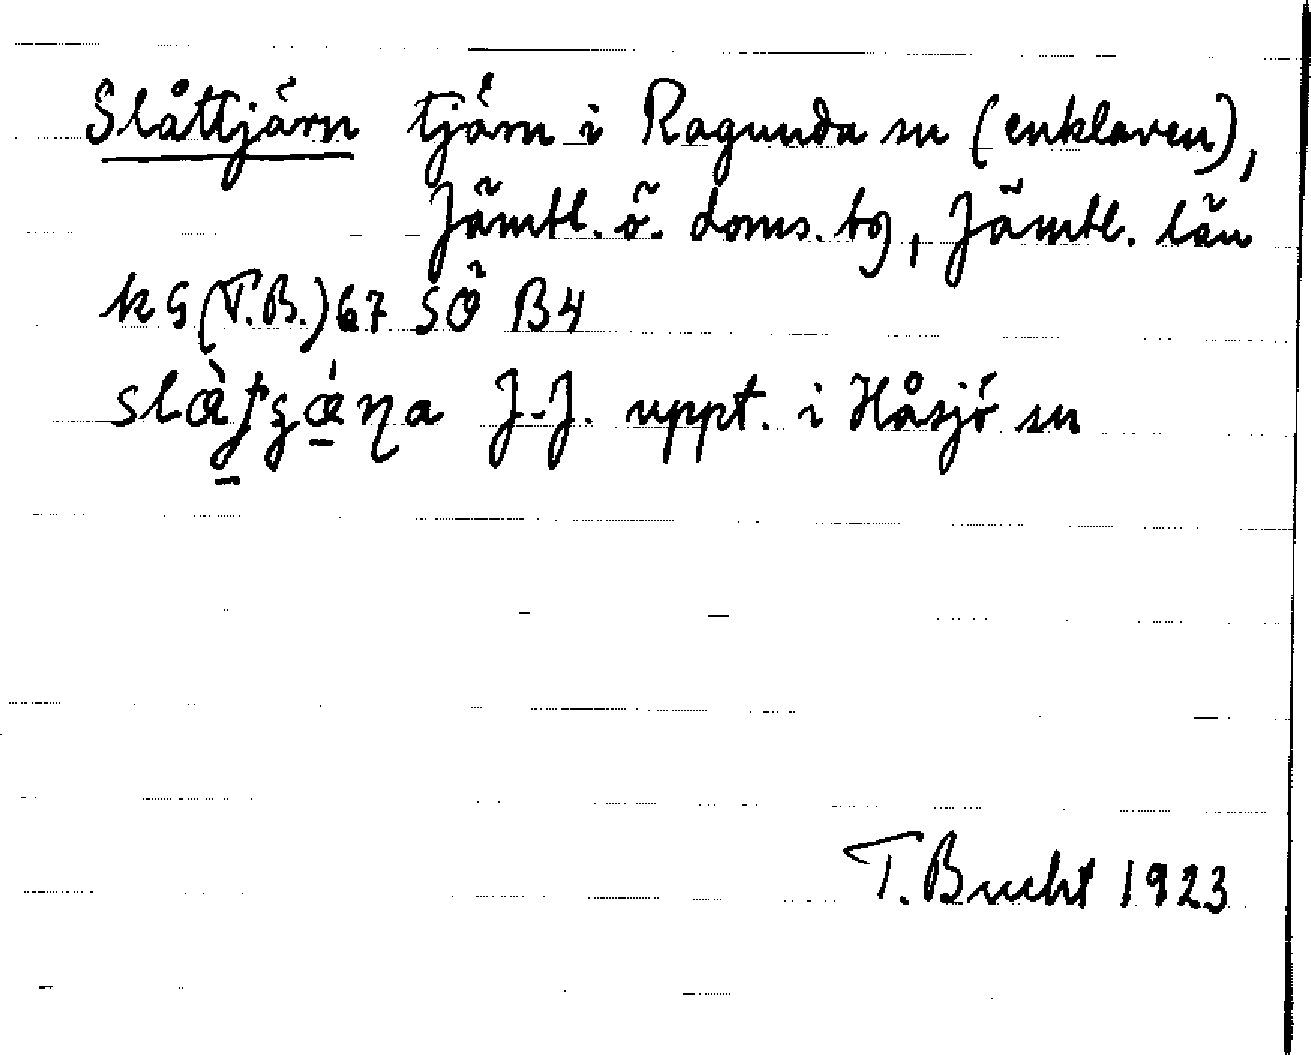 Slåttjärn tjärn i Ragunda sn (enklaven),
Jämtl. ö. doms. tg, Jämtl. län
k G (T.B.) 67 SÖ B4
J.-J. uppt. i Håsjö sn
T. Bucht 1923